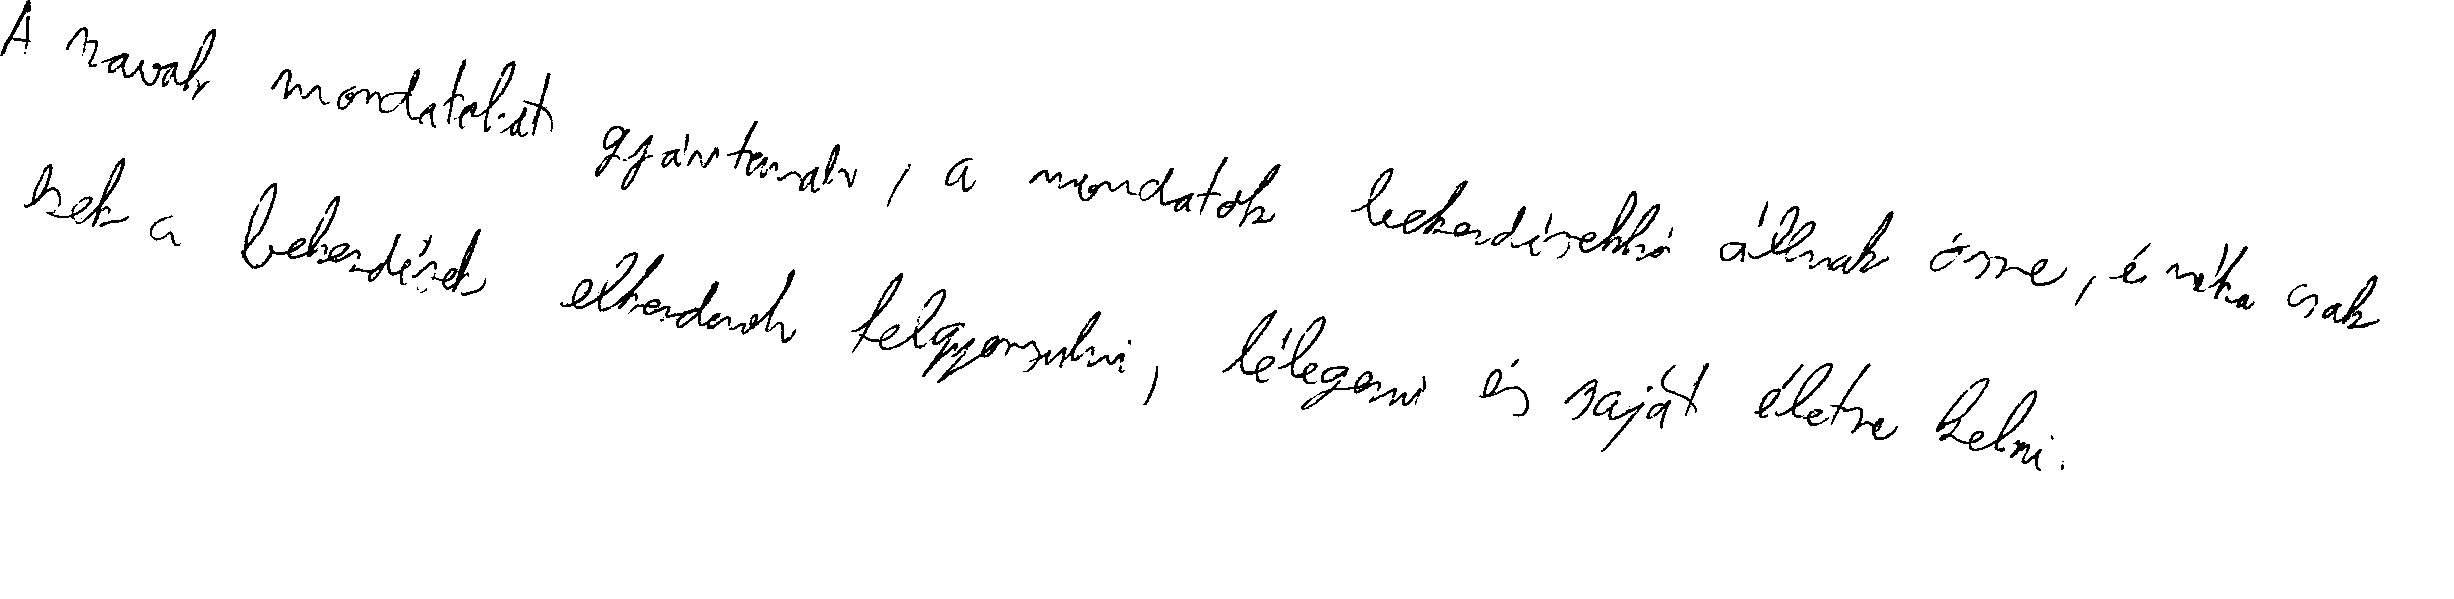 A szavak mondatokat gyártanak, a mondatok bekezdésekké állnak össze, é néha csak
ezek a bekezdések elkezdenek felgyorsulni, lélegezni és saját életre kelni.